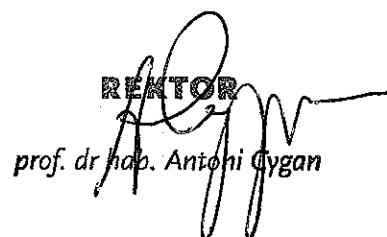 REKTOR
prof. dr hab. Antoni Cygan